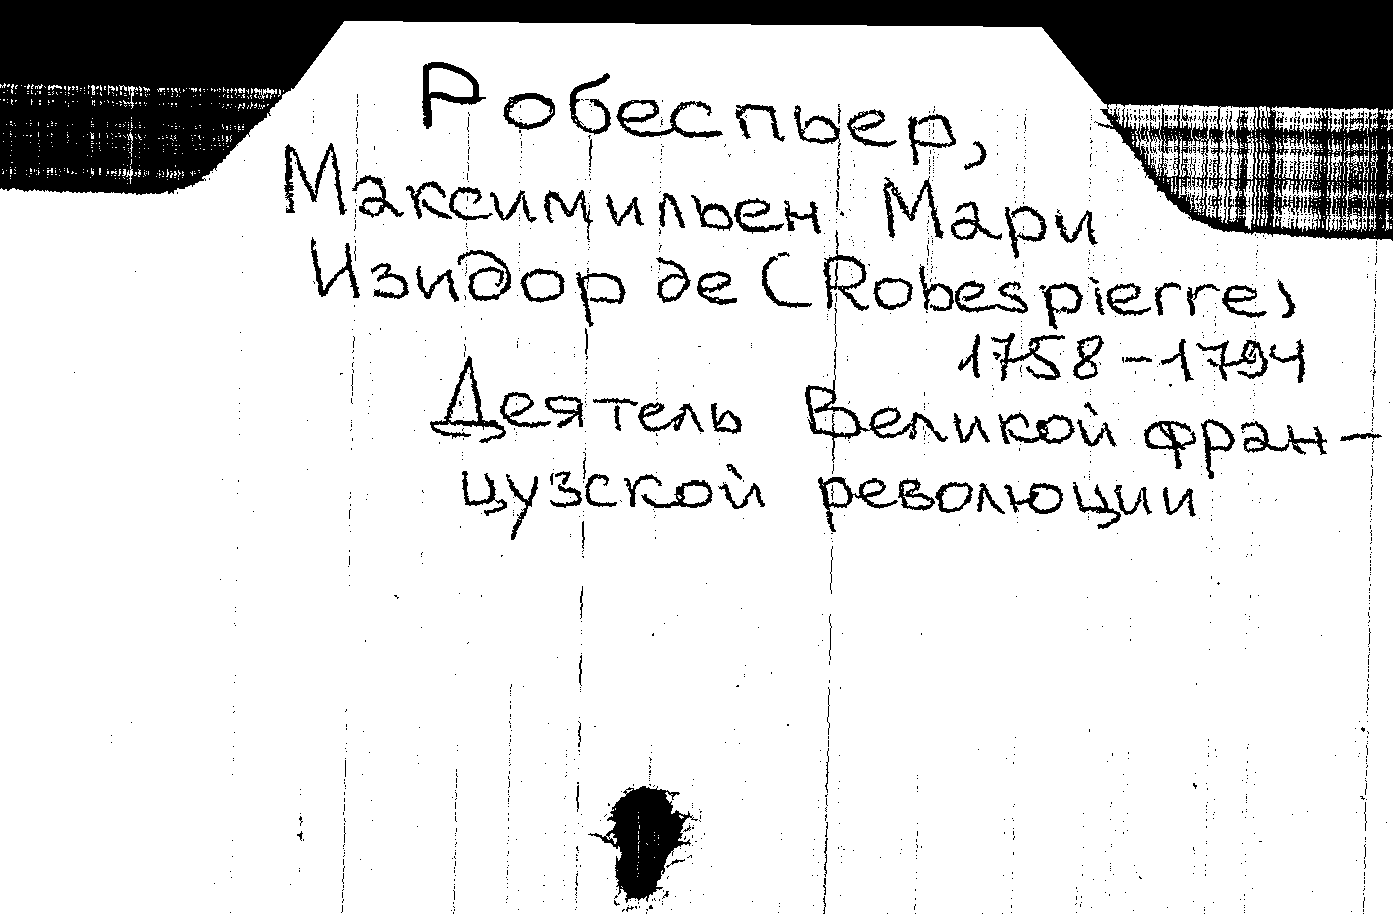 Робеспьер,
Максимильен Мари
Изидор де (Robespierre)
1758-1794
Деятель Великой фран-
цузской революции